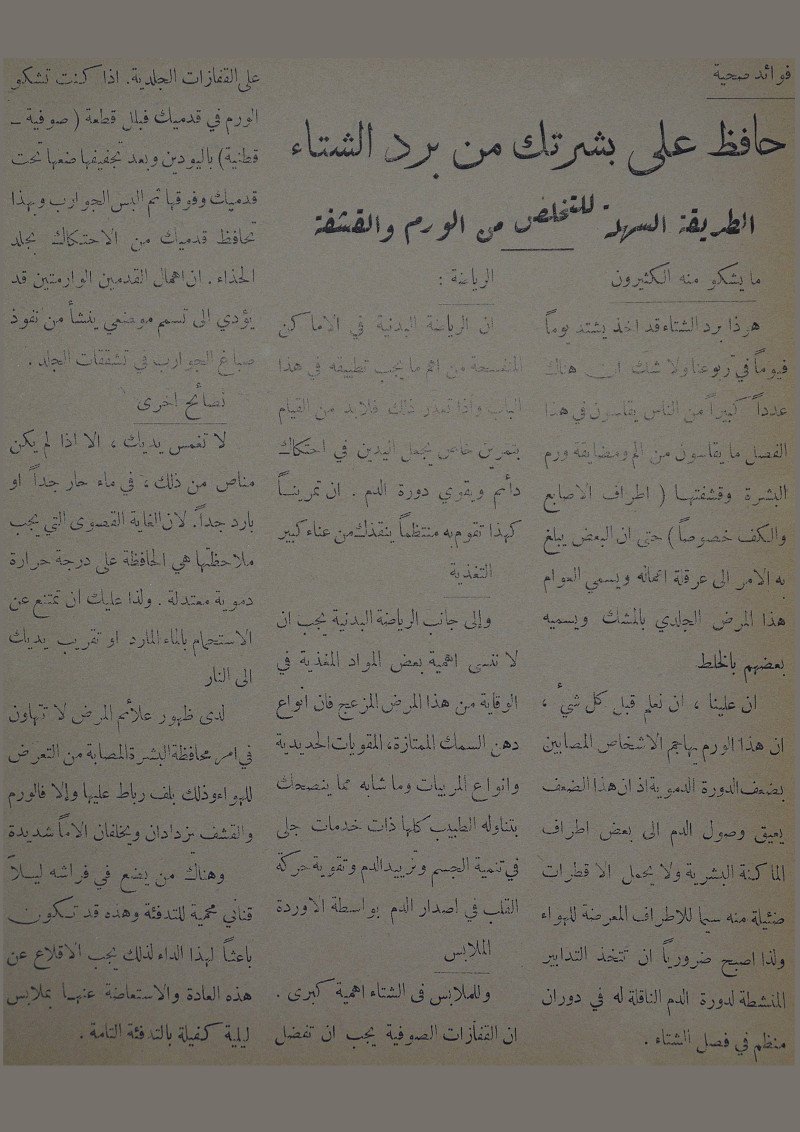 فوائد صحية
حافظ على بشرتك من برد الشتاء
الطريقة السهلة للتخلص من الورم والقشفة
ما يشكو منه الكثيرون
هوذا برد الشتاء قد اخذ يشتد يوماً
فيوماً في ربوعنا ولا شك ان هناك
عدداً كبيراً من الناس يقاسون في هذا
الفصل ما يقاسون من الم ومضايقة ورم
البشرة وقشفتها ( اطراف الاصابع
والكف خصوصاً ) حتى ان البعض يبلغ
به الامر الى عرقلة اعماله ويسمي العوام
هذا المرض الجلدي بالمشك ويسميه
بعضهم بالخلط
ان علينا ، ان نعلم قبل كل شيء ،
ان هذا الورم يهاجم الاشخاص المصابين
بضعف الدورة الدموية اذ ان هذا الضعف
يعيق وصول الدم الى بعض اطراف
الماكنة البشرية ولا يحمل الا قطرات
ضئيلة منه سيما للاطراف المعرضة للهواء
ولذا اصبح ضرورياً ان تتخذ التدابير
المنشطة لدورة الدم الناقلة له في دوران
منظم في فصل الشتاء .
الرياضة :
ان الرياضة البدنية في الاماكن
المنفسحة من اهم ما يجب تطبيقه في هذا
الباب واذا تعذر ذلك فلابد من القيام
بتمرين خاص يجعل اليدين في احتكاك
دائم ويقوي دورة الدم . ان تمريناً
كهذا تقوم به منتظماً ينقذك من عناء كبير
التغذية
وإلى جانب الرياضة البدنية يجب ان
لا ننسى اهمية بعض المواد المغذية في
الوقاية من هذا المرض المزعج فان انواع
دهن السمك الممتازة، المقويات الحديدية
وانواع المربيات وما شابه مما ينصحك
بتناوله الطبيب كلها ذات خدمات جلى
في تنمية الجسم وتزييد الدم وتقوية حركة
القلب في اصدار الدم بواسطة الاوردة
الملابس
وللملابس في الشتاء اهمية كبرى .
ان القفازات الصوفية يجب ان تفضل
على القفازات الجلدية. اذا كنت تشكو
الورم في قدميك فبلل قطعة ( صوفية _
قطنية ) باليودين وبعد تجفيفها ضعها تحت
قدميك وفوقها ثم البس الجوارب وبهذا
تحافظ قدميك من الاحتكاك بجلد
الحذاء . ان اهمال القدمين الوارمتين قد
يؤدي الى تسمم موضعي ينشأ من نفوذ
صباغ الجوارب في تشققات الجلد .
نصائح اخرى
لا تغمس يديك ، الا اذا لم يكن
مناص من ذلك ، في ماء حار جداً او
بارد جداً. لان الغاية القصوى التي يجب
ملاحظتها هي المحافظة على درجة حرارة
دموية معتدلة . ولذا عليك ان تمتنع عن
الاستحمام بالماء البارد او تقريب يديك
الى النار
لدى ظهور علائم المرض لا تتهاون
في امر محافظة البشرة المصابة من التعرض
للهواء وذلك بلف رباط عليها وإلا فالورم
والقشف يزدادان ويخلفان الاماً شديدة
وهناك من يضع في فراشه ليلاً
قناني محمية للتدفئة وهذه قد تكون
باعثاً لهذا الداء لذلك يجب الاقلاع عن
هذه العادة والاستعاضة عنها بملابس
ليلية كفيلة بالتدفئة التامة .